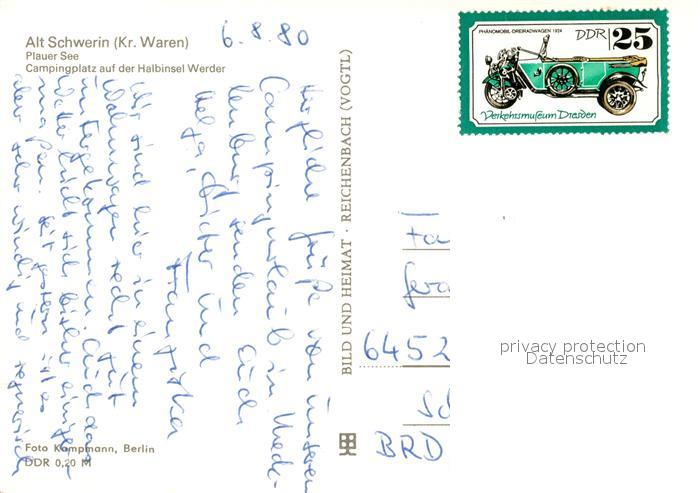 Alt Schwerin (Kr. Waren)
Plauer See
Campingplatz auf der Halbinsel Werder
6.8.80
Herzliche Grüße von unserem
Campingurlaub in Meck-
lenburg senden Euch
Helga, Dieter und
Franziska
Wir sind hier in einem
Wohnwagen recht gut
untergekommen. Auch das
Wetter hielt sich bisher einiger-
maßen. Seit gestern ist es
aber sehr windig und regnerisch
Foto Kampmann, Berlin
DDR 0,20 M
BILD UND HEIMAT · REICHENBACH (VOGTL)
PHÄNOMOBIL-DREIRADWAGEN 1924
DDR 25
Verkehrsmuseum Dresden
Fa
6452
BRD
privacy protection
Datenschutz